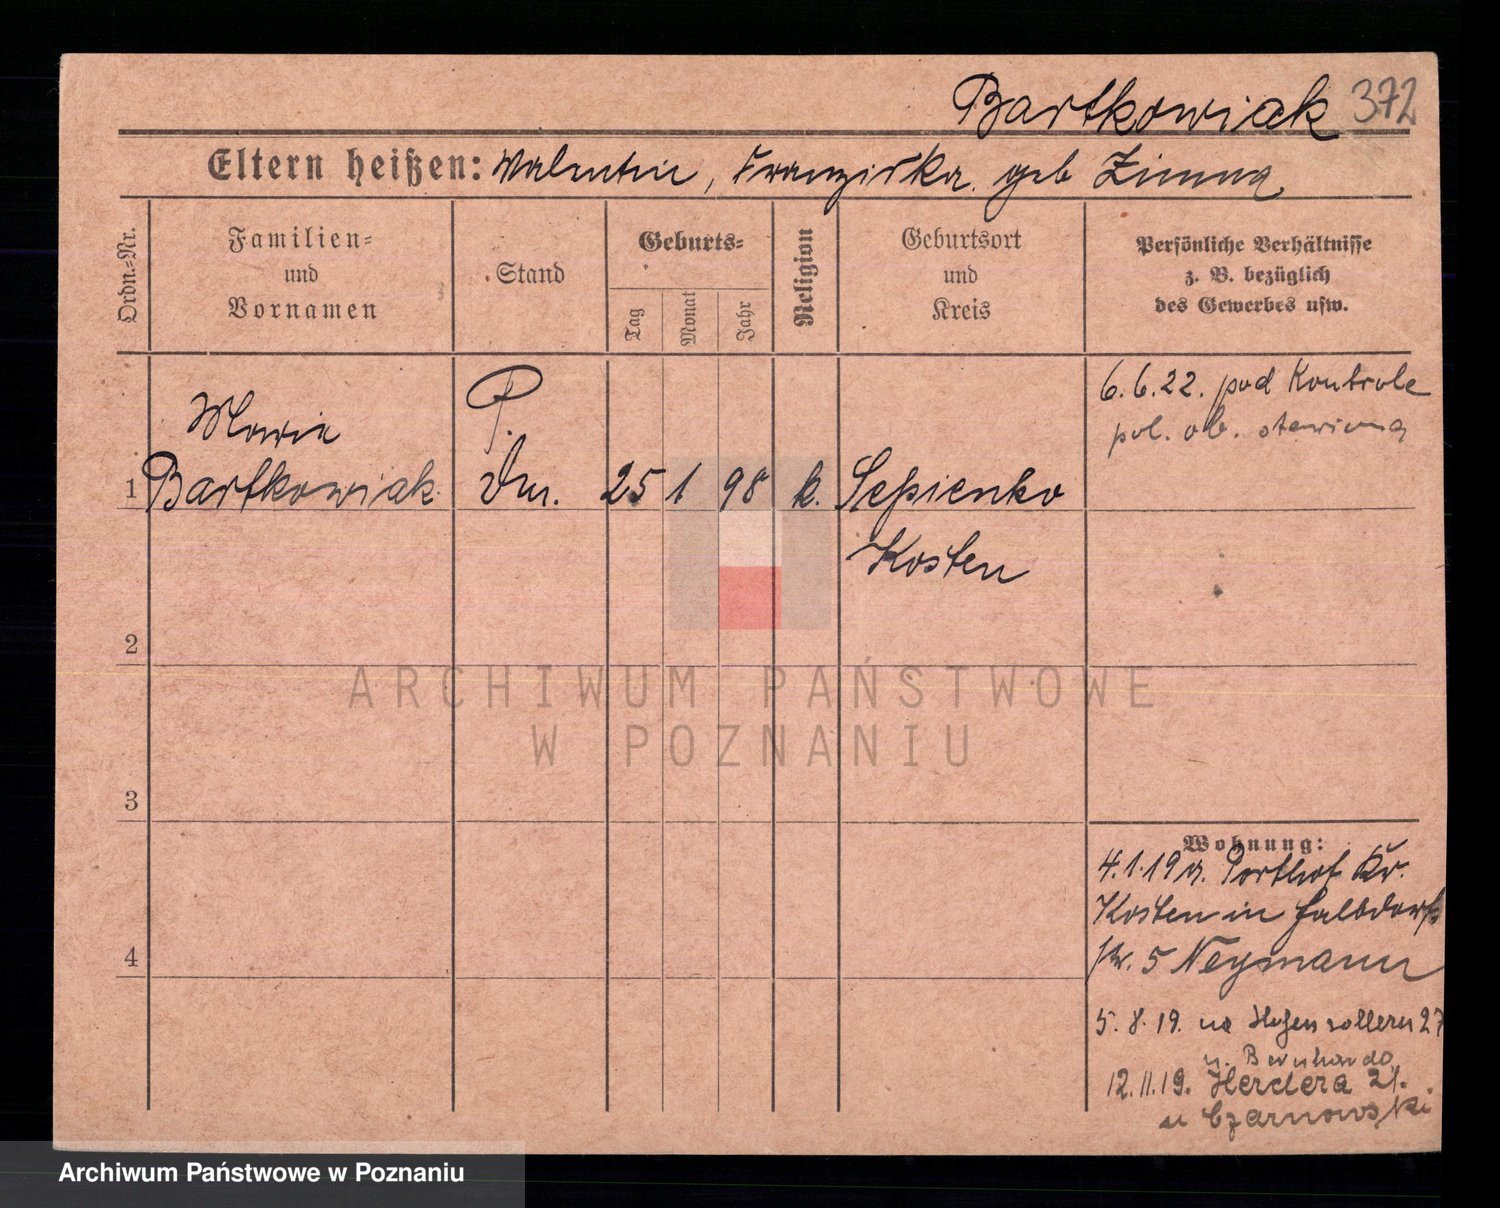 Bartkowiak 372
Eltern heißen: Valentin, Franziska geb Zimna
Ordn.-Nr.
Familien-
und
Vornamen
Stand
Geburts-
Tag
Monat
Jahr
Religion
Geburtsort
und
Kreis
Persönliche Verhältnisse
z. B. bezüglich
des Gewerbes usw.
6.6.22. pod Kontrole
pol. ob. stawienna
Maria
P.
1 Bartkowiak 25 1 98 k. Sepienko
Kosten
2
3
4
Wohnung:
4.1.19 v. Porthof Kr.
Kosten in Halbdorf-
str. 5 Neymann
5.8.19. na Hohenzollern 27
u. Bernhardo
12.11.19. Herdera 21.
u Czarnowski
ARCHIWUM PAŃSTWOWE
W POZNANIU
Archiwum Państwowe w Poznaniu